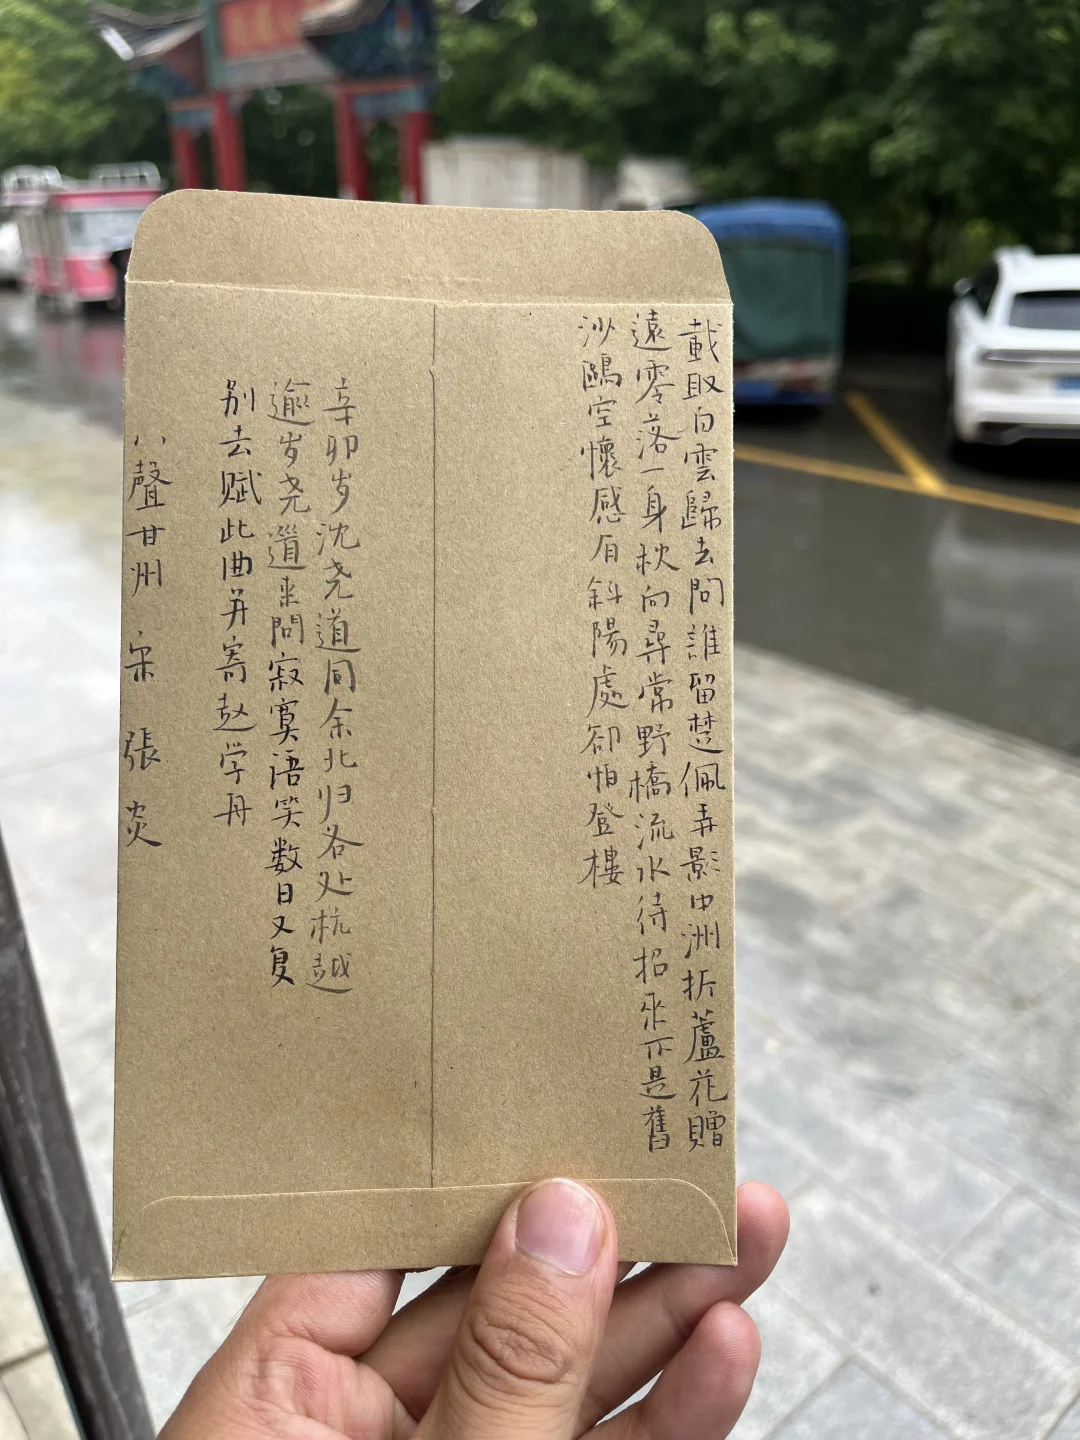 載取白雲歸去問誰留楚佩弄影中洲折蘆花贈
遠零落一身秋向尋常野橋流水待招來不是舊
沙鷗空懷感有斜陽處卻怕登樓
辛卯岁沈尧道同余北归各处杭越
逾岁尧道来问寂寞语笑数日又复
别去赋此曲并寄赵学舟
八聲甘州 宋 張炎